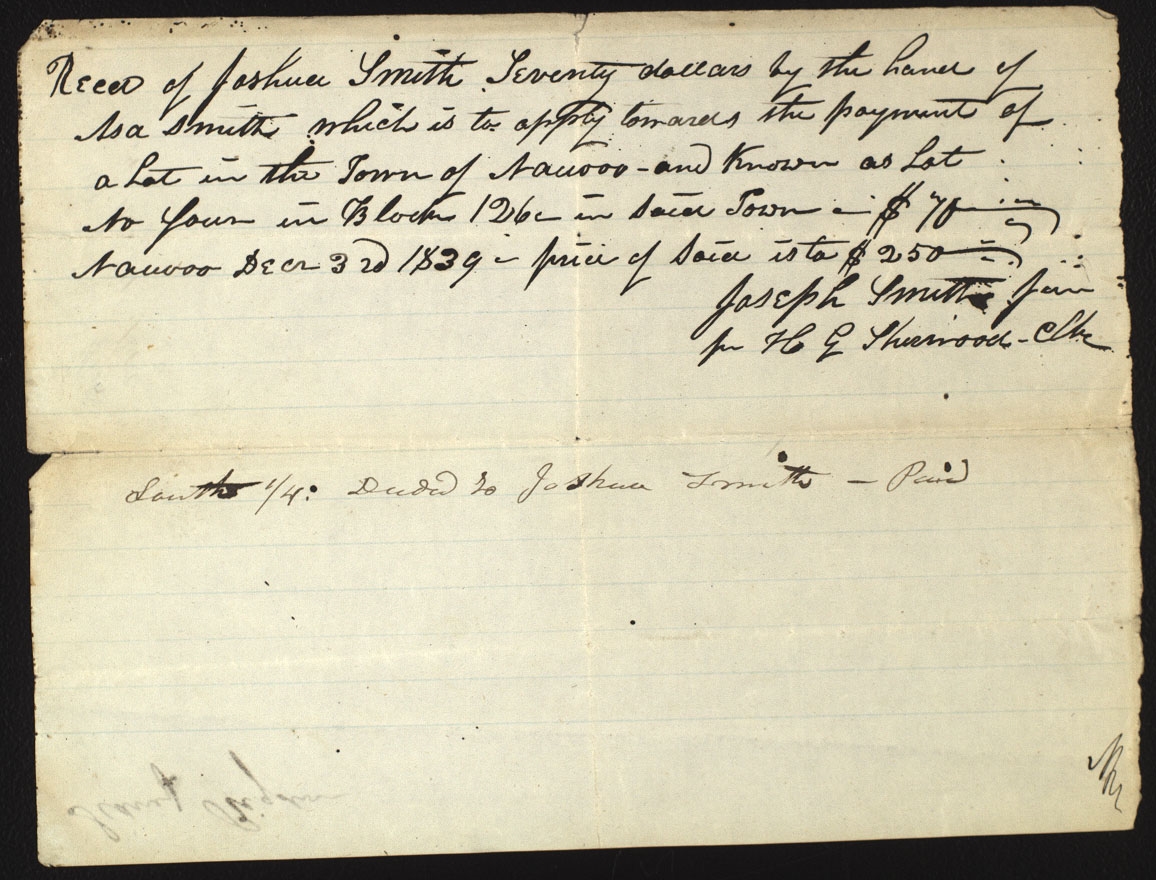 Recd of Joshua Smith Seventy dollars by the hand of
Asa Smith which is to apply towards the payment of
a Lot in the Town of Nauvoo - and Known as Lot
No Four in Block 126 - in Said Town - $ 70
Nauvoo Decr 3rd 1839 - price of Said is to $ 250
Joseph Smith Jun
per H G Sherwood - Clk
South 1/4: Deeded to Joshua Smith - Paid